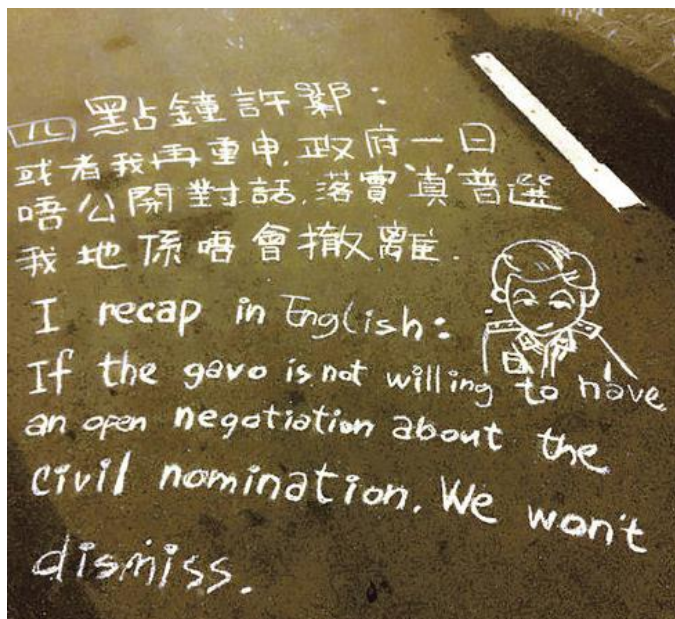 四點鐘許sir:
或者我再重申,政府一日
唔公開對話,落實'真'普選
我地係唔會撤離.
I recap in English:
If the gavo is not willing to have
an open negotiation about the
civil nomination. We won't
dismiss.